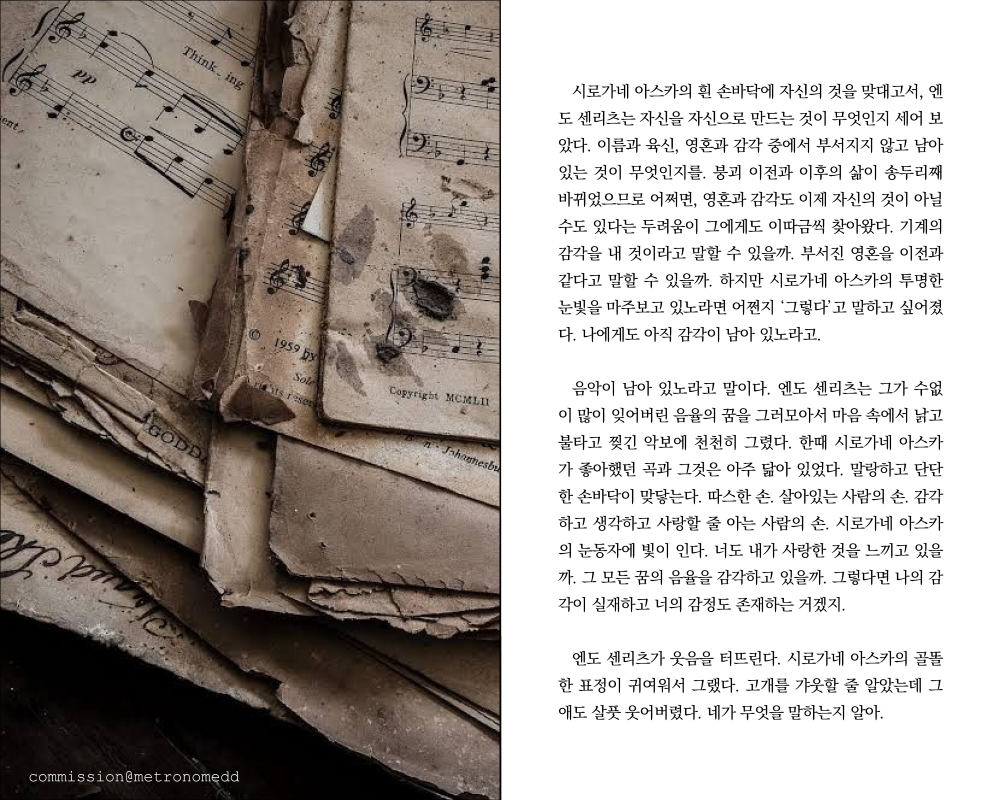 Think - ing
pp
ent.
© 1959 by
Sole
Copyright MCMLII
GODD
Johannesbu
commission@metronomedd
시로가네 아스카의 흰 손바닥에 자신의 것을 맞대고서, 엔
도 센리츠는 자신을 자신으로 만드는 것이 무엇인지 세어 보
았다. 이름과 육신, 영혼과 감각 중에서 부서지지 않고 남아
있는 것이 무엇인지를. 붕괴 이전과 이후의 삶이 송두리째
바뀌었으므로 어쩌면, 영혼과 감각도 이제 자신의 것이 아닐
수도 있다는 두려움이 그에게도 이따금씩 찾아왔다. 기계의
감각을 내 것이라고 말할 수 있을까. 부서진 영혼을 이전과
같다고 말할 수 있을까. 하지만 시로가네 아스카의 투명한
눈빛을 마주보고 있노라면 어쩐지 ‘그렇다’고 말하고 싶어졌
다. 나에게도 아직 감각이 남아 있노라고.
음악이 남아 있노라고 말이다. 엔도 센리츠는 그가 수없
이 많이 잊어버린 음율의 꿈을 그러모아서 마음 속에서 낡고
불타고 찢긴 악보에 천천히 그렸다. 한때 시로가네 아스카
가 좋아했던 곡과 그것은 아주 닮아 있었다. 말랑하고 단단
한 손바닥이 맞닿는다. 따스한 손. 살아있는 사람의 손. 감각
하고 생각하고 사랑할 줄 아는 사람의 손. 시로가네 아스카
의 눈동자에 빛이 인다. 너도 내가 사랑한 것을 느끼고 있을
까. 그 모든 꿈의 음율을 감각하고 있을까. 그렇다면 나의 감
각이 실재하고 너의 감정도 존재하는 거겠지.
엔도 센리츠가 웃음을 터뜨린다. 시로가네 아스카의 골똘
한 표정이 귀여워서 그랬다. 고개를 갸웃할 줄 알았는데 그
애도 살풋 웃어버렸다. 네가 무엇을 말하는지 알아.